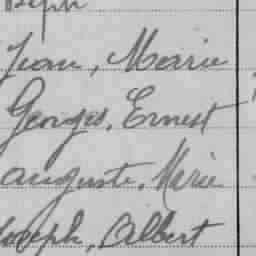 Jean, Marie
Georges, Ernest
Auguste, Marie
Joseph, Albert